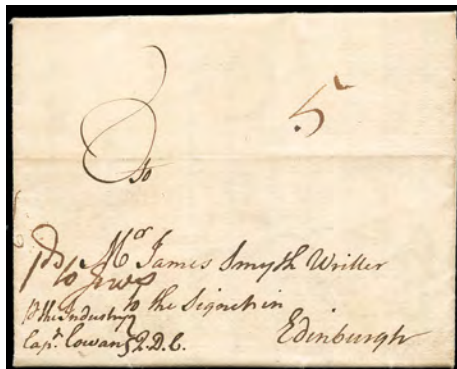 5
To
Mr James Smyth Writter
to the Signet in
Edinburgh
p the Industry
Capt. Cowan Q.D.C.